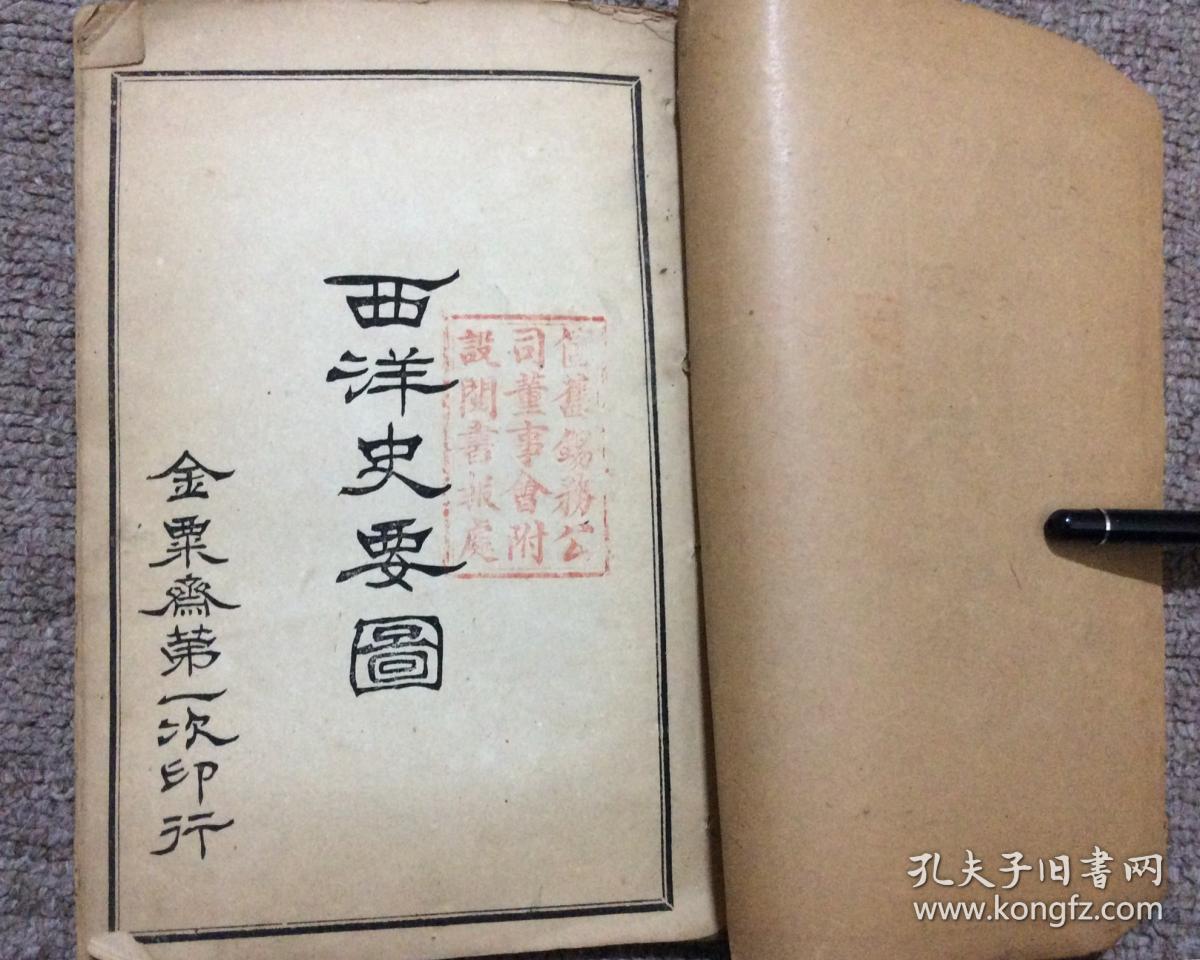 西洋史要圖
金粟齋第一次印行
舊錫務公
司董事會附
設閱書報處
孔夫子旧书网
www.kongfz.com